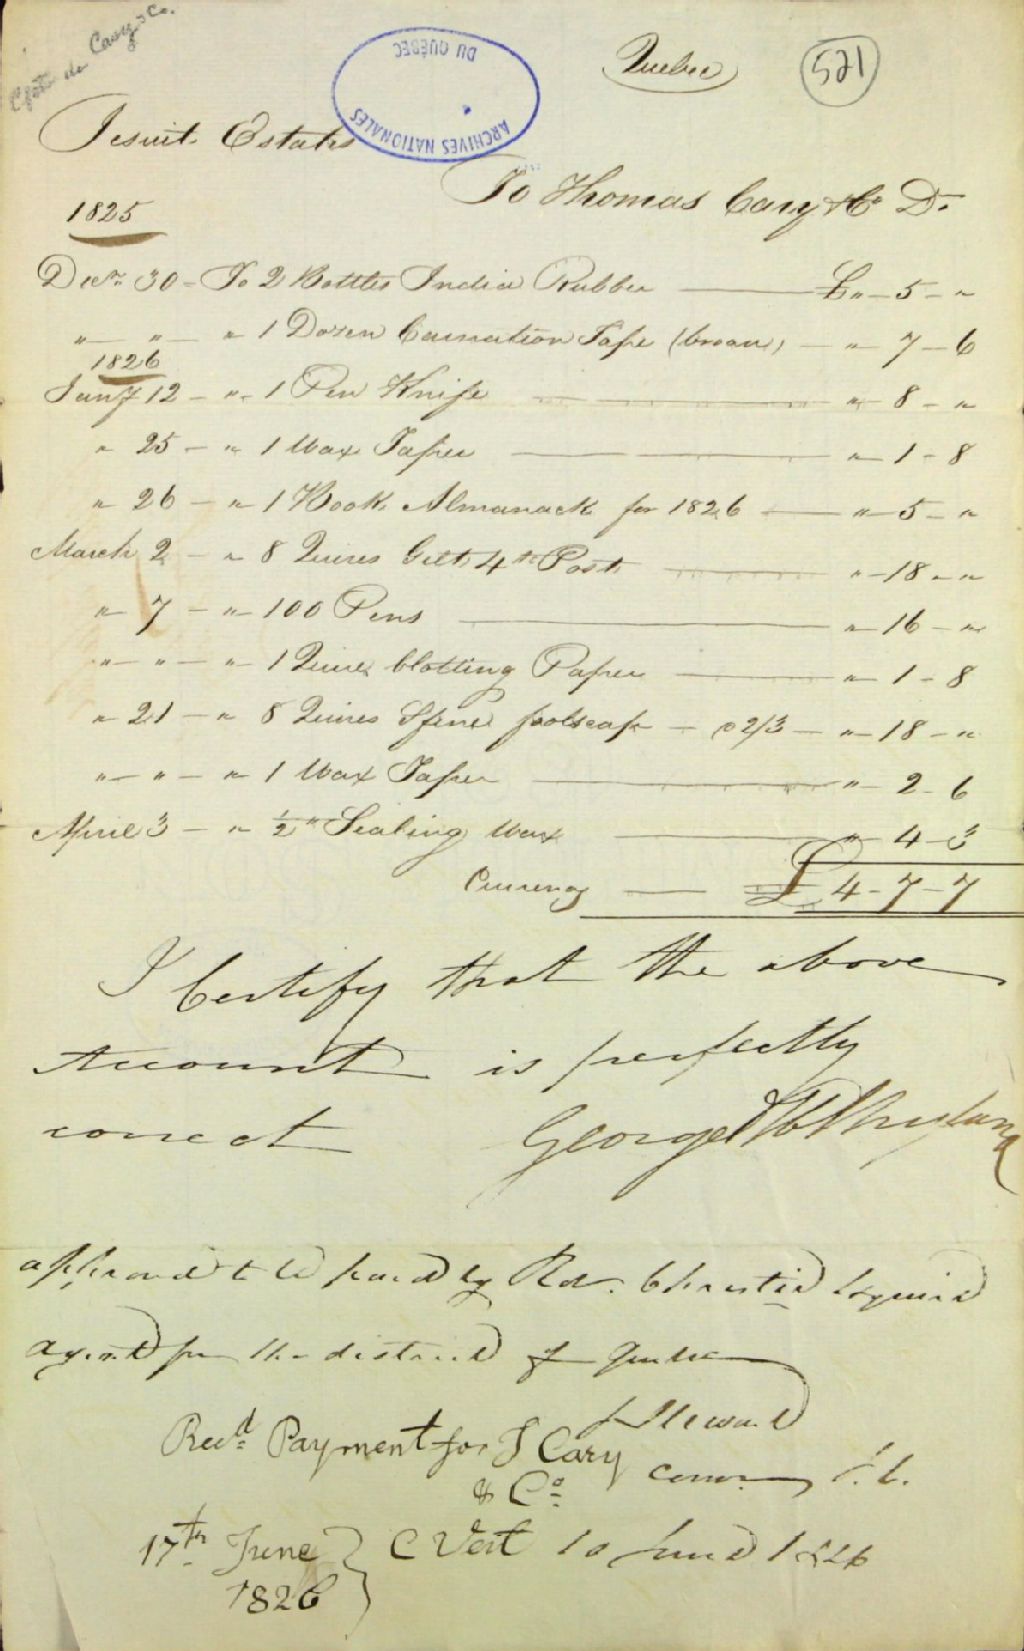 Cpte de Cary & Co.
Quebec
521
ARCHIVES NATIONALES
DU QUÉBEC
Jesuit Estates
To Thomas Cary & Co Dr
1825
Decr 30 - To 2 Bottles India Rubber — £ " - 5 - "
" — " — " 1 Dozen Carnation Tape (broad) — " - 7 - 6
1826
Jany 12 - " - 1 Pen Knife — " - 8 - "
" 25 - " 1 Wax Taper — " - 1 - 8
" 26 - " 1 Book Almanack for 1826 — " - 5 - "
March 2 - " 8 Quires Gilt 4to Post — " - 18 - "
" 7 - " 100 Pens — " - 16 - "
" - " - " 1 Quire blotting Paper — " - 1 - 8
" 21 - " 8 Quires Sfine foolscap - @ 2/3 - " - 18 - "
" - " - " 1 Wax Taper — " - 2 - 6
April 3 - " ½ " Sealing Wax — " - 4 - 3
Currency — £ 4 - 7 - 7
I Certify that the above
Account is perfectly
correct George H Ryland
approved to be paid by Rd. Christie Esquire
agent for the district of Quebec
J Stewart
Recd Payment for T Cary
& Co
Commr
17th June
1826
C Vert 10 June 1826